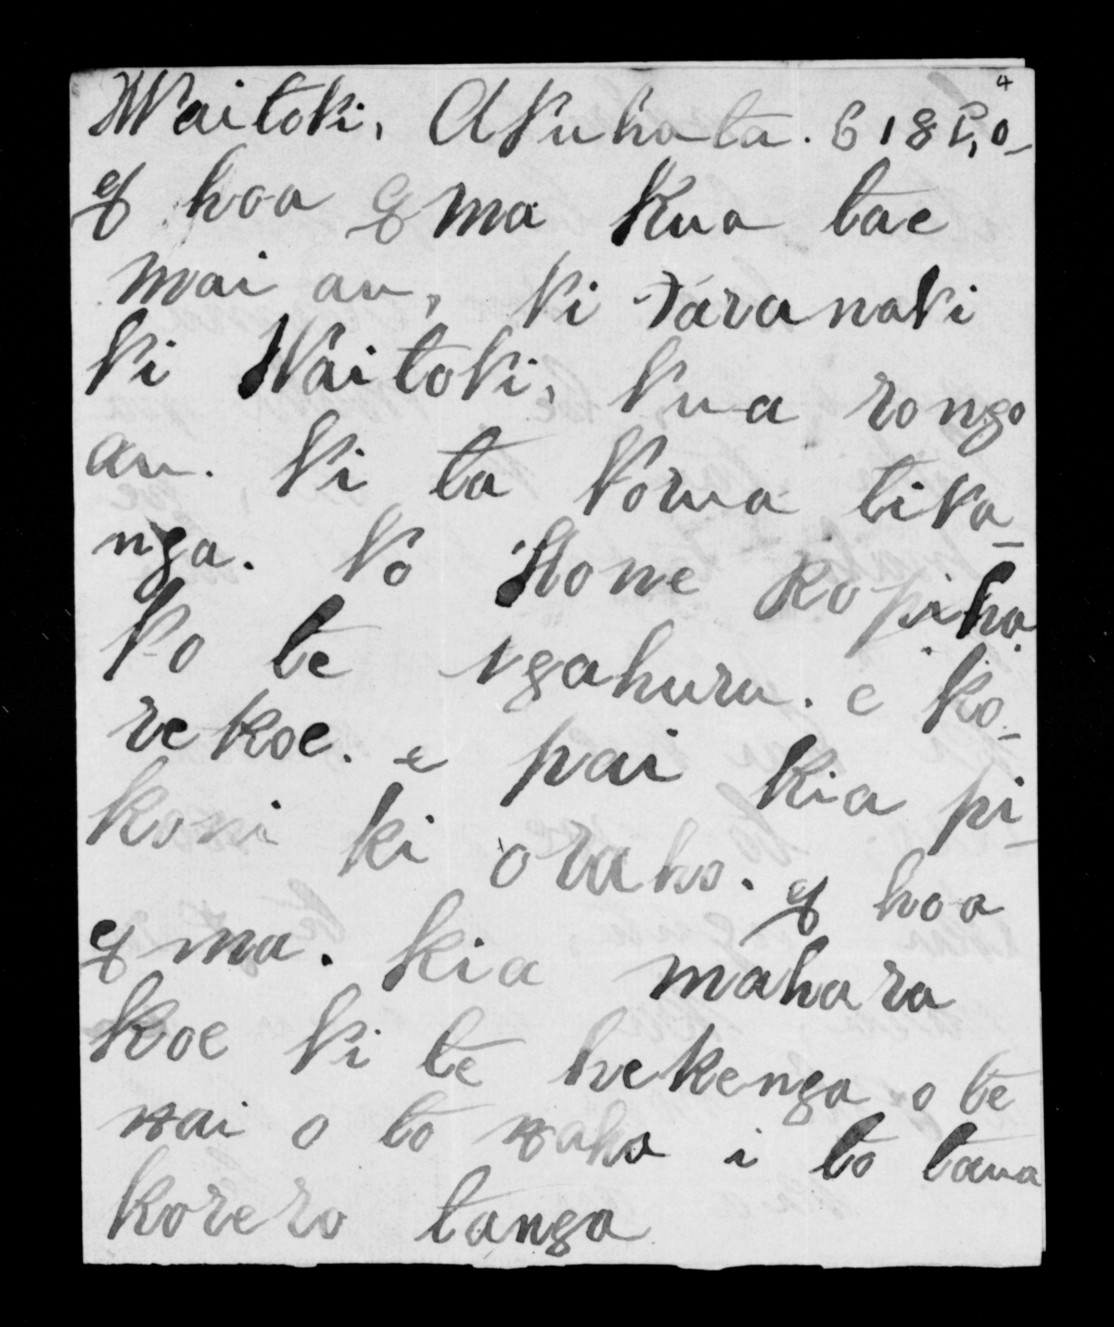 4
Waitoki, Akuhata. 6 1850
E hoa E ma Kua tae
mai au, ki Taranaki
ki Waitoki, kua rongo
au. ki ta koua tika-
nga. ko Hone Kopiha
ko te ngahuru. e ko-
rekoe. e pai kia pi-
koni ki oraho. E hoa
E ma. kia mahara
koe ki te hekenga o te
wai o to waha i to taua
korero tanga